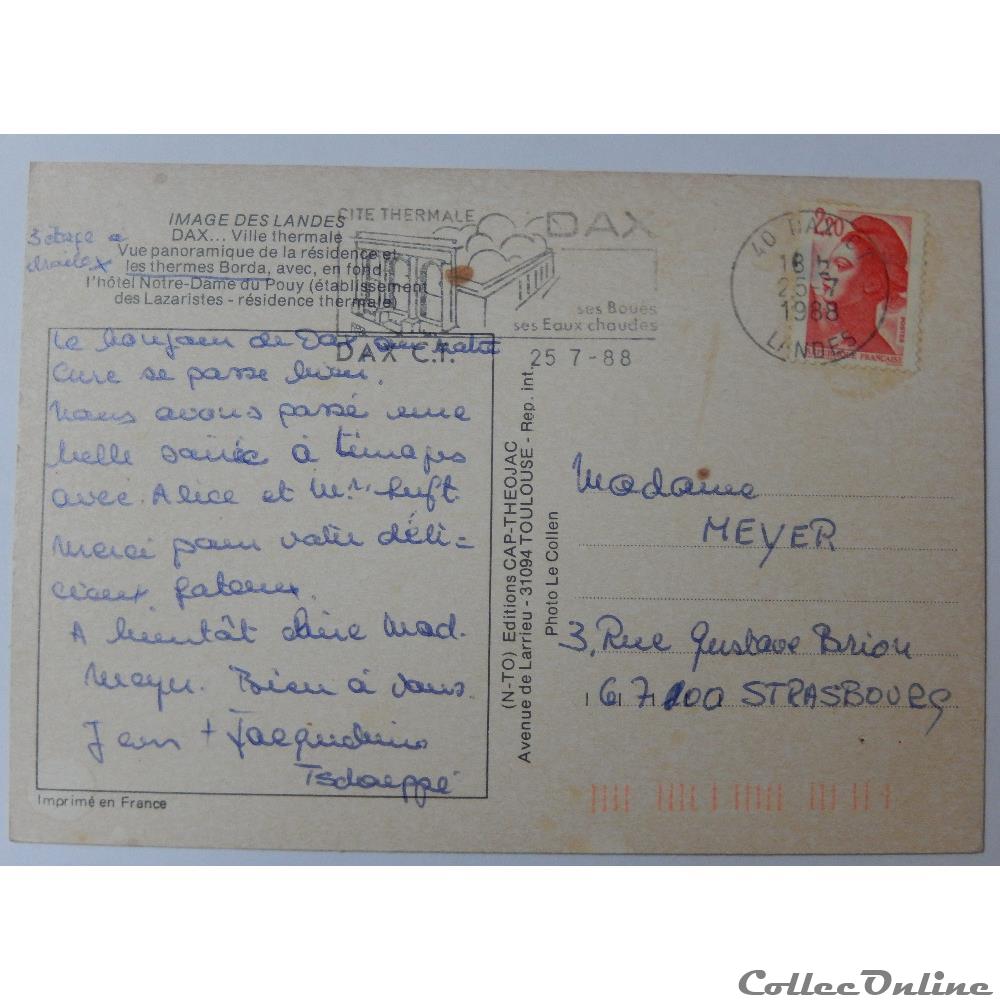 IMAGE DES LANDES
DAX... Ville thermale
Vue panoramique de la résidence et
les thermes Borda, avec, en fond
l'hôtel Notre-Dame du Pouy (établissement
des Lazaristes - résidence thermale)
3 étage a
CITE THERMALE
DAX
ses Boues
ses Eaux chaudes
DAX C.T.
25 7 - 88
40 DAX
18 H
25-7
1988
LANDES
2,20
POSTES
REPUBLIQUE FRANÇAISE
Le bonjour de Dax notre
Cure se passe bien.
Nous avons passé une
belle soirée à
avec Alice et Mr. Luft.
Merci pour votre déli-
cieux gateaux.
A bientôt chère Mad.
Meyer. Bien à vous.
Jean + Jacqueline
Tschaeppé
Imprimé en France
(N-TO) Editions CAP-THEOJAC
Avenue de Larrieu - 31094 TOULOUSE - Rep. int.
Photo Le Collen
Madame
MEYER
3, Rue Gustave Brion
67100 STRASBOURG
CollecOnline